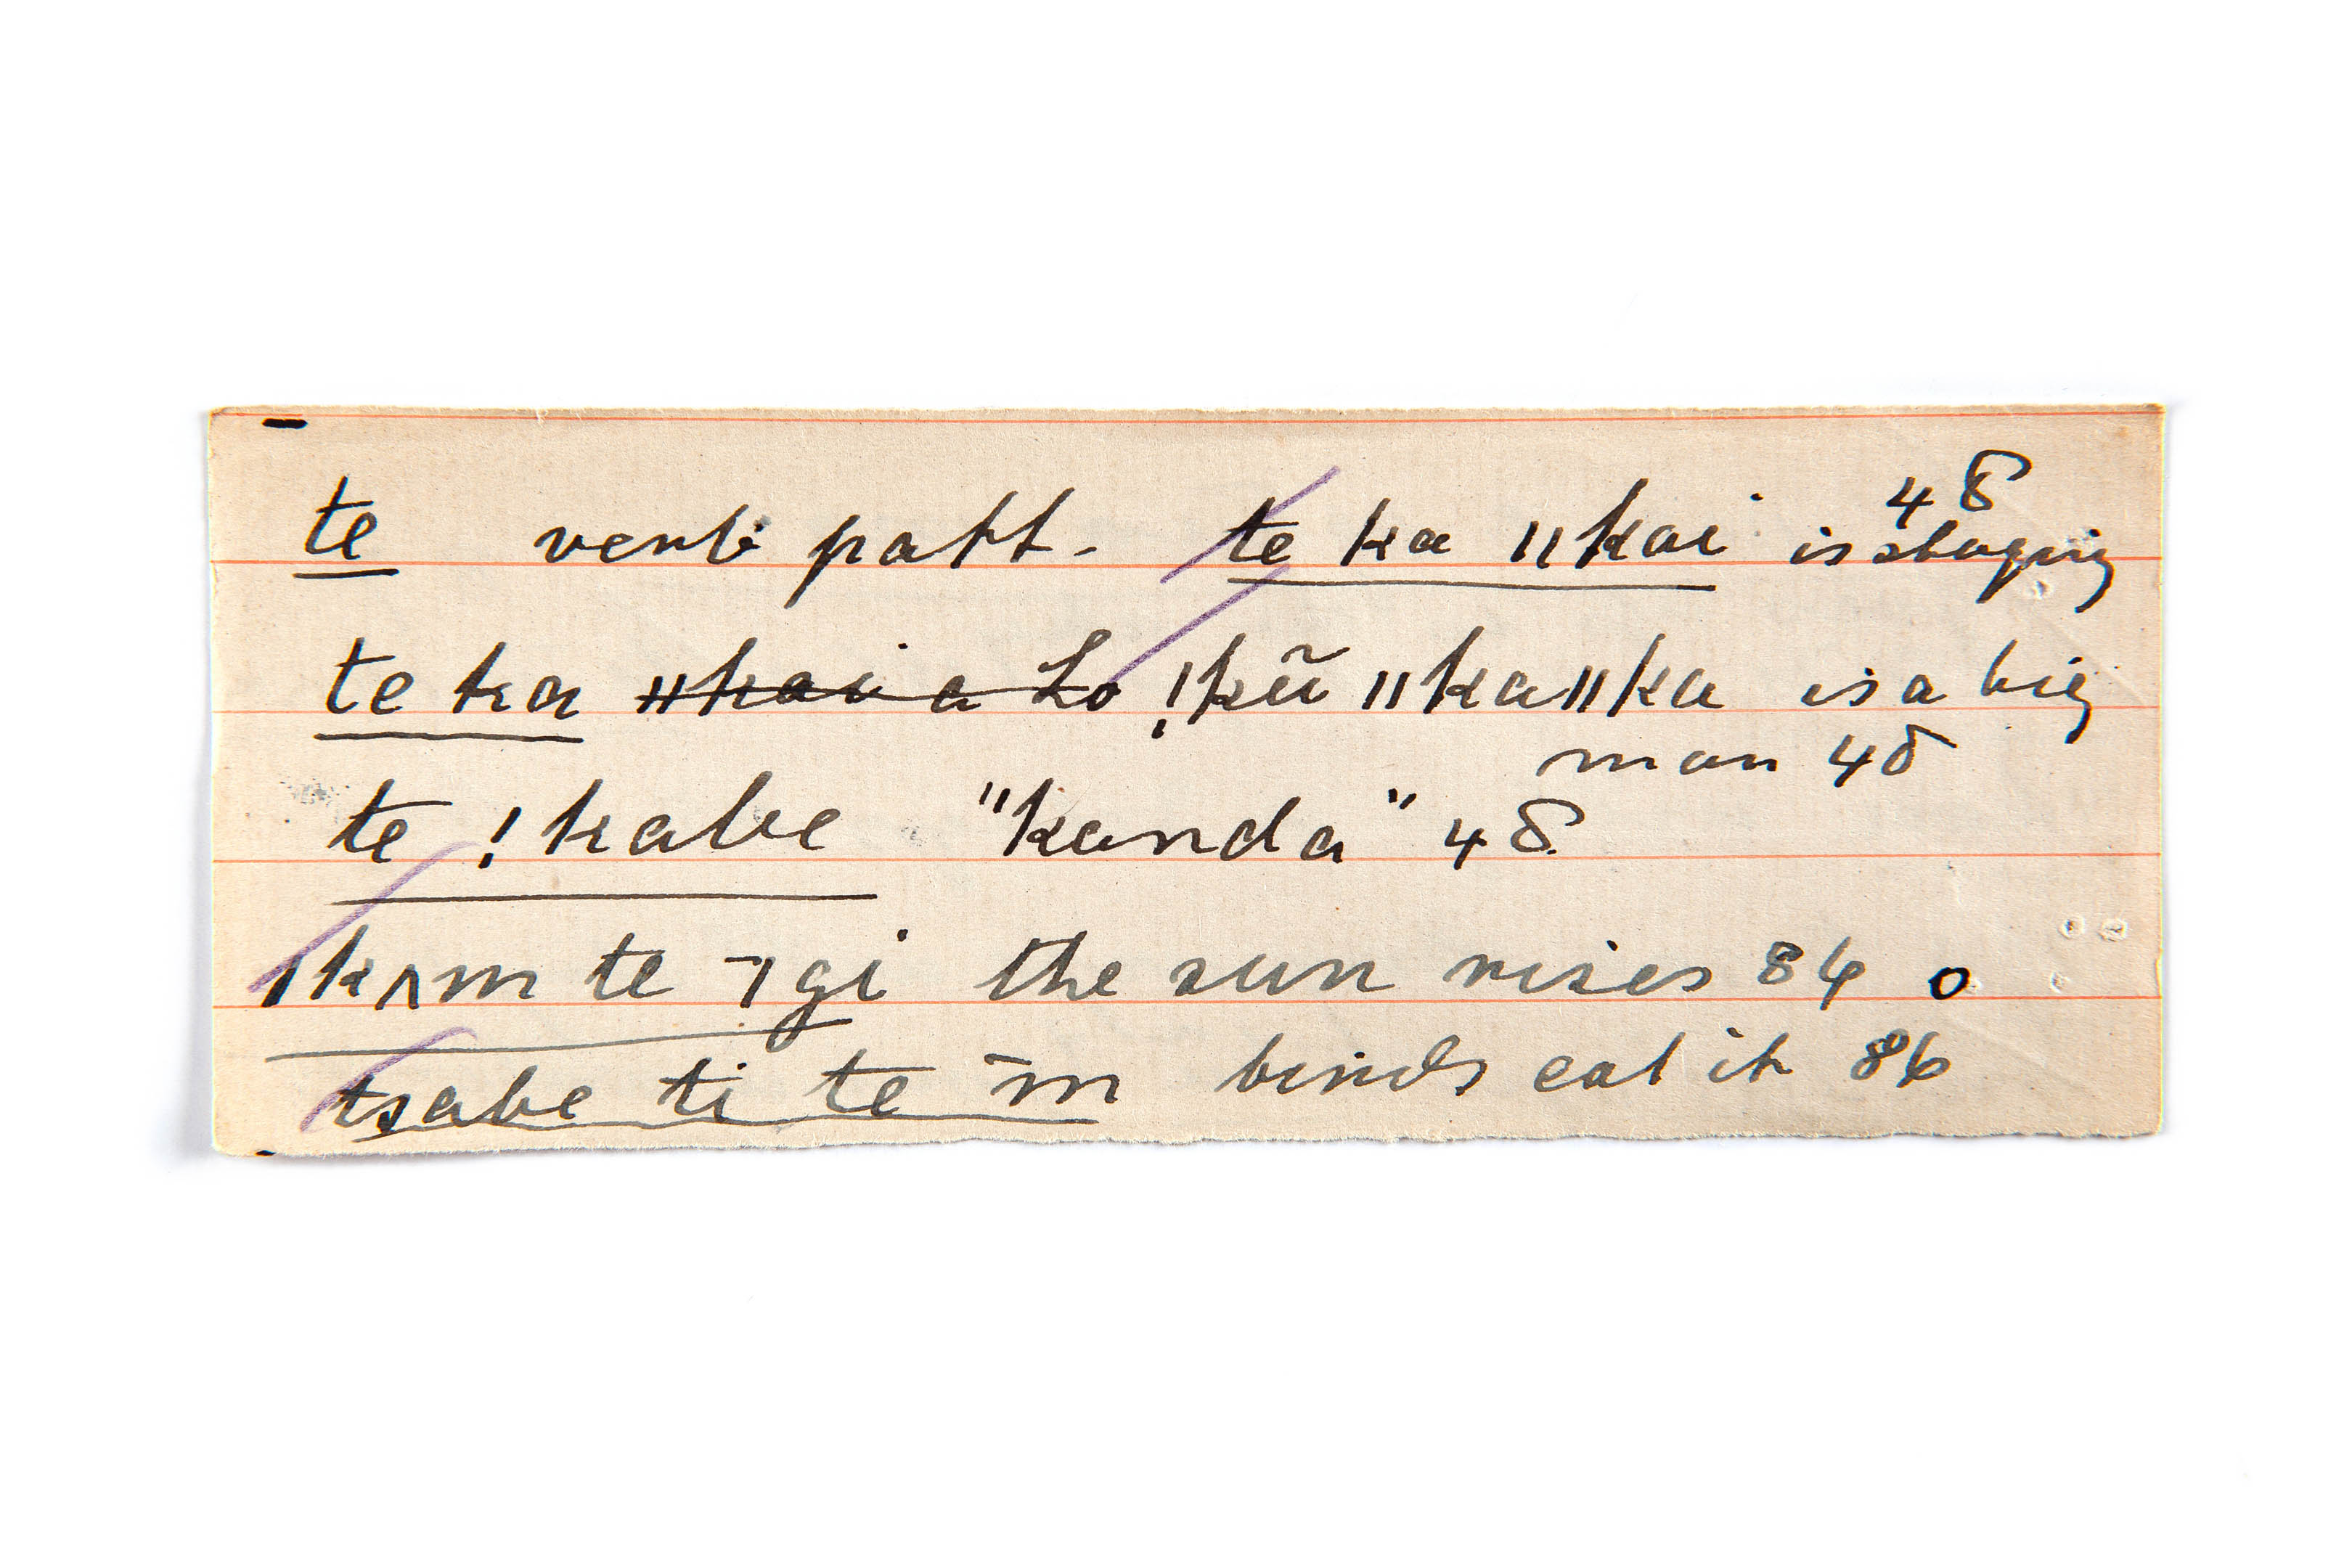 te verb part. te ka ǁkai is staying 48
te ka ǁkai a Lo !kũ ǁkaǁka is a big
man 48
te !kabe "kanda" 48
ǀkʌm te ˥gi the sun rises 86 o
tsabe ti te ˉm birds eat it 86